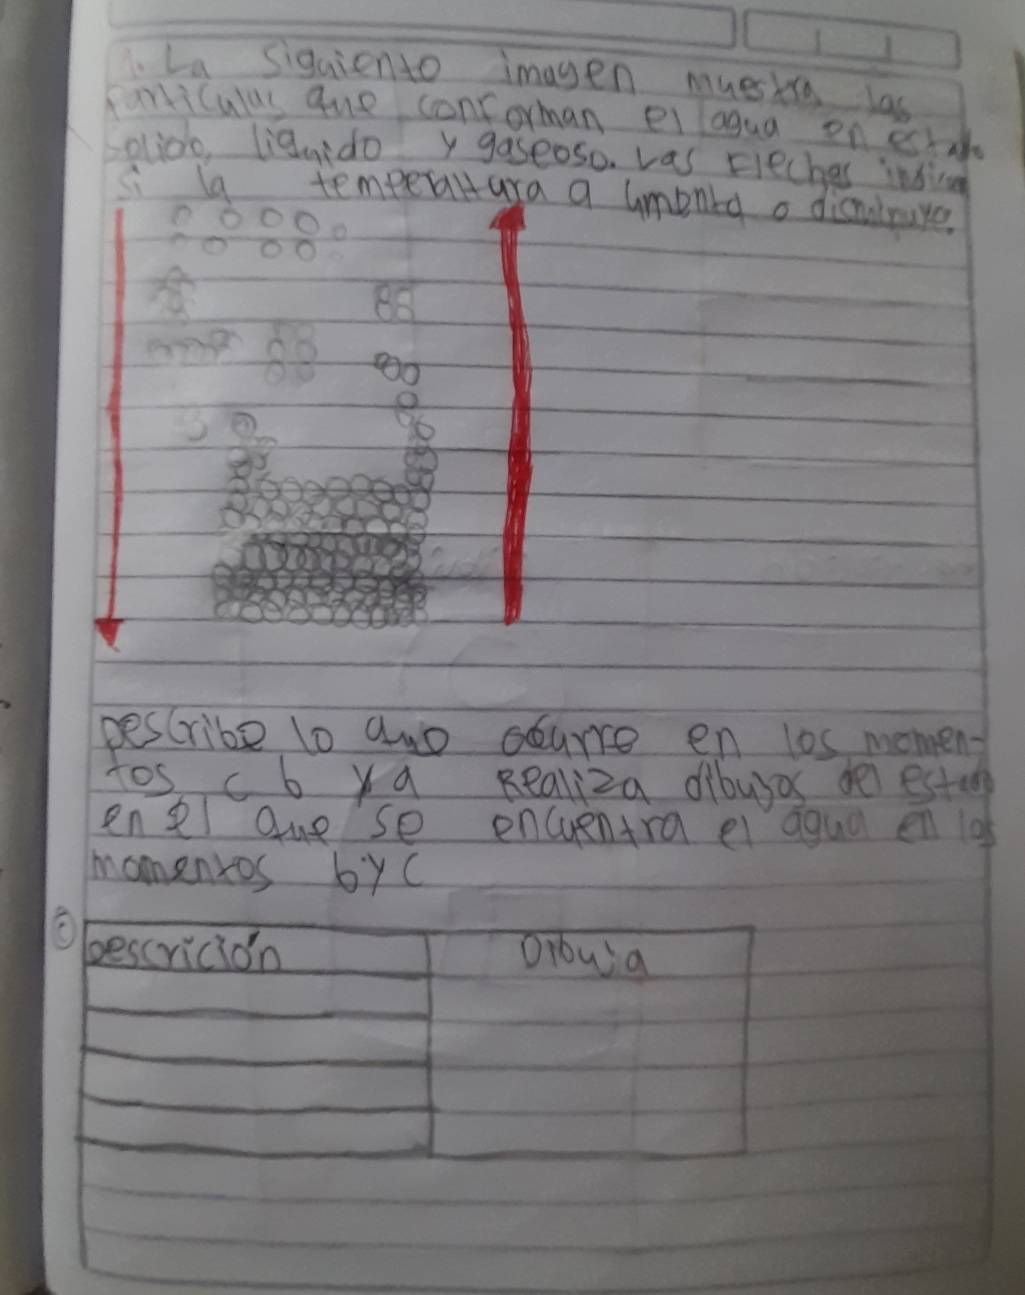 1. La siguiento imagen muestra las
particulas que conforman el agua en estado
solido, liquido y gaseoso. Las Flechas indican
si la temperattura a umenta o disminuye.
Describe lo quo ocurre en los momen-
tos c b y a Realiza dibujos del estado
en el que se encuentra el agua en los
momentos b y c
c Descrición Dibuja